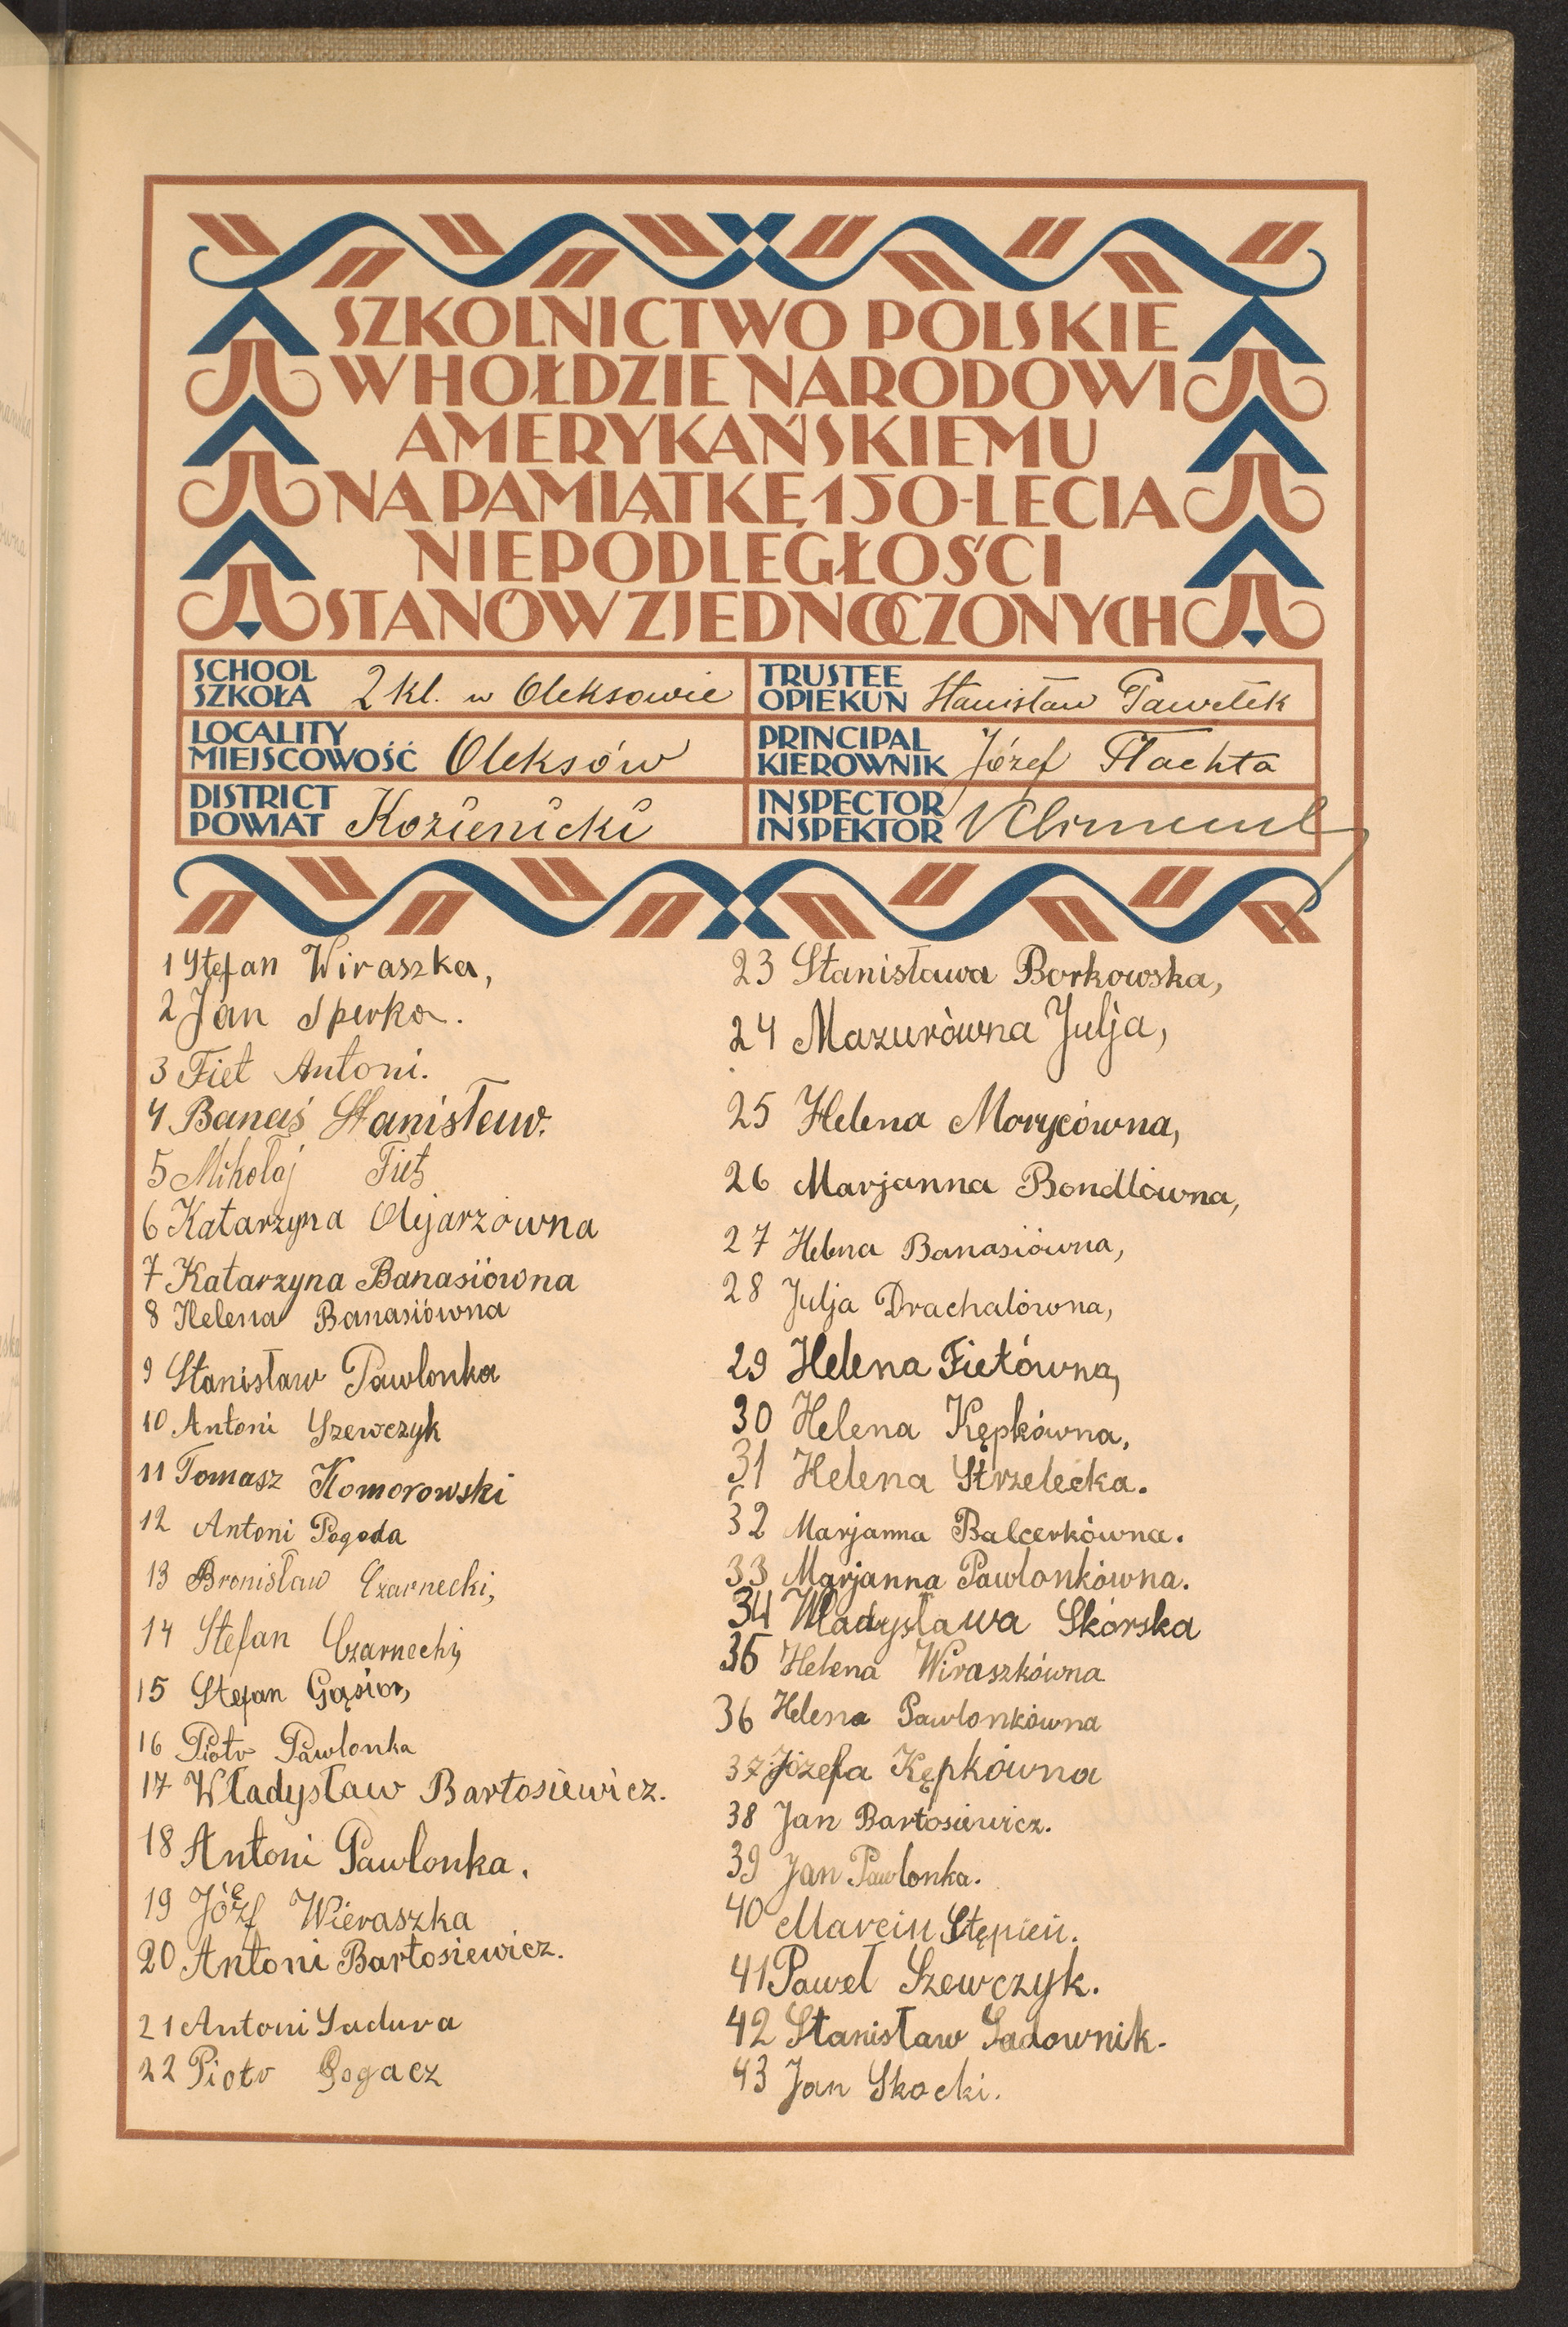 SZKOLNICTWO POLSKIE
W HOŁDZIE NARODOWI
AMERYKAŃSKIEMU
NA PAMIĄTKĘ 150-LECIA
NIEPODLEGŁOŚCI
STANÓW ZJEDNOCZONYCH
SCHOOL
SZKOŁA 2 kl. w Oleksowie
TRUSTEE
OPIEKUN Stanisław Pawełek
LOCALITY
MIEJSCOWOŚĆ Oleksów
PRINCIPAL
KIEROWNIK Józef Flachta
DISTRICT
POWIAT Kozienicki
INSPECTOR
INSPEKTOR
1 Stefan Wiraszka,
2 Jan Sperka.
3 Fiet Antoni.
4 Banaś Stanisław.
5 Mikołaj Fiet
6 Katarzyna Olejarzówna
7 Katarzyna Banasiówna
8 Helena Banasiówna
9 Stanisław Pawlonka
10 Antoni Szewczyk
11 Tomasz Komorowski
12 Antoni Pogoda
13 Bronisław Czarnecki,
14 Stefan Czarnecki,
15 Stefan Gąsior,
16 Piotr Pawlonka
17 Władysław Bartosiewicz.
18 Antoni Pawlonka.
19 Józef Wieraszka
20 Antoni Bartosiewicz.
21 Antoni Sadura
22 Piotr Gogacz
23 Stanisława Borkowska,
24 Mazurówna Julja,
25 Helena Morycówna,
26 Marjanna Bondlówna,
27 Helena Banasiówna,
28 Julja Drachalówna,
29 Helena Fietówna,
30 Helena Kępkówna,
31 Helena Strzelecka.
32 Marjanna Balcerkówna.
33 Marjanna Pawlonkówna.
34 Władysława Skórska
35 Helena Wiraszkówna
36 Helena Pawlonkówna
37 Józefa Kępkówna
38 Jan Bartosiewicz.
39 Jan Pawlonka.
40 Marcin Stępień.
41 Paweł Szewczyk.
42 Stanisław Sadownik.
43 Jan Skocki.